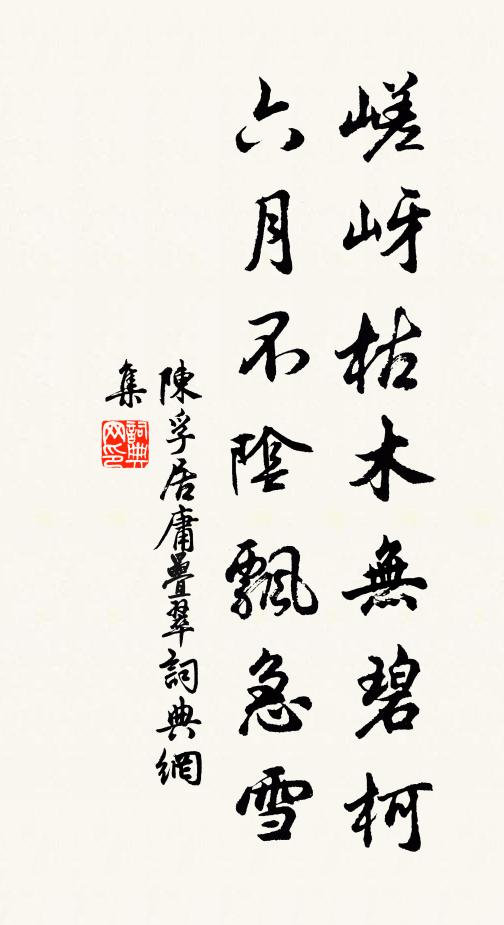 嵯岈枯木無碧柯
六月不陰飄急雪
陳孚居庸疊翠詞典網
集
詞典
网印